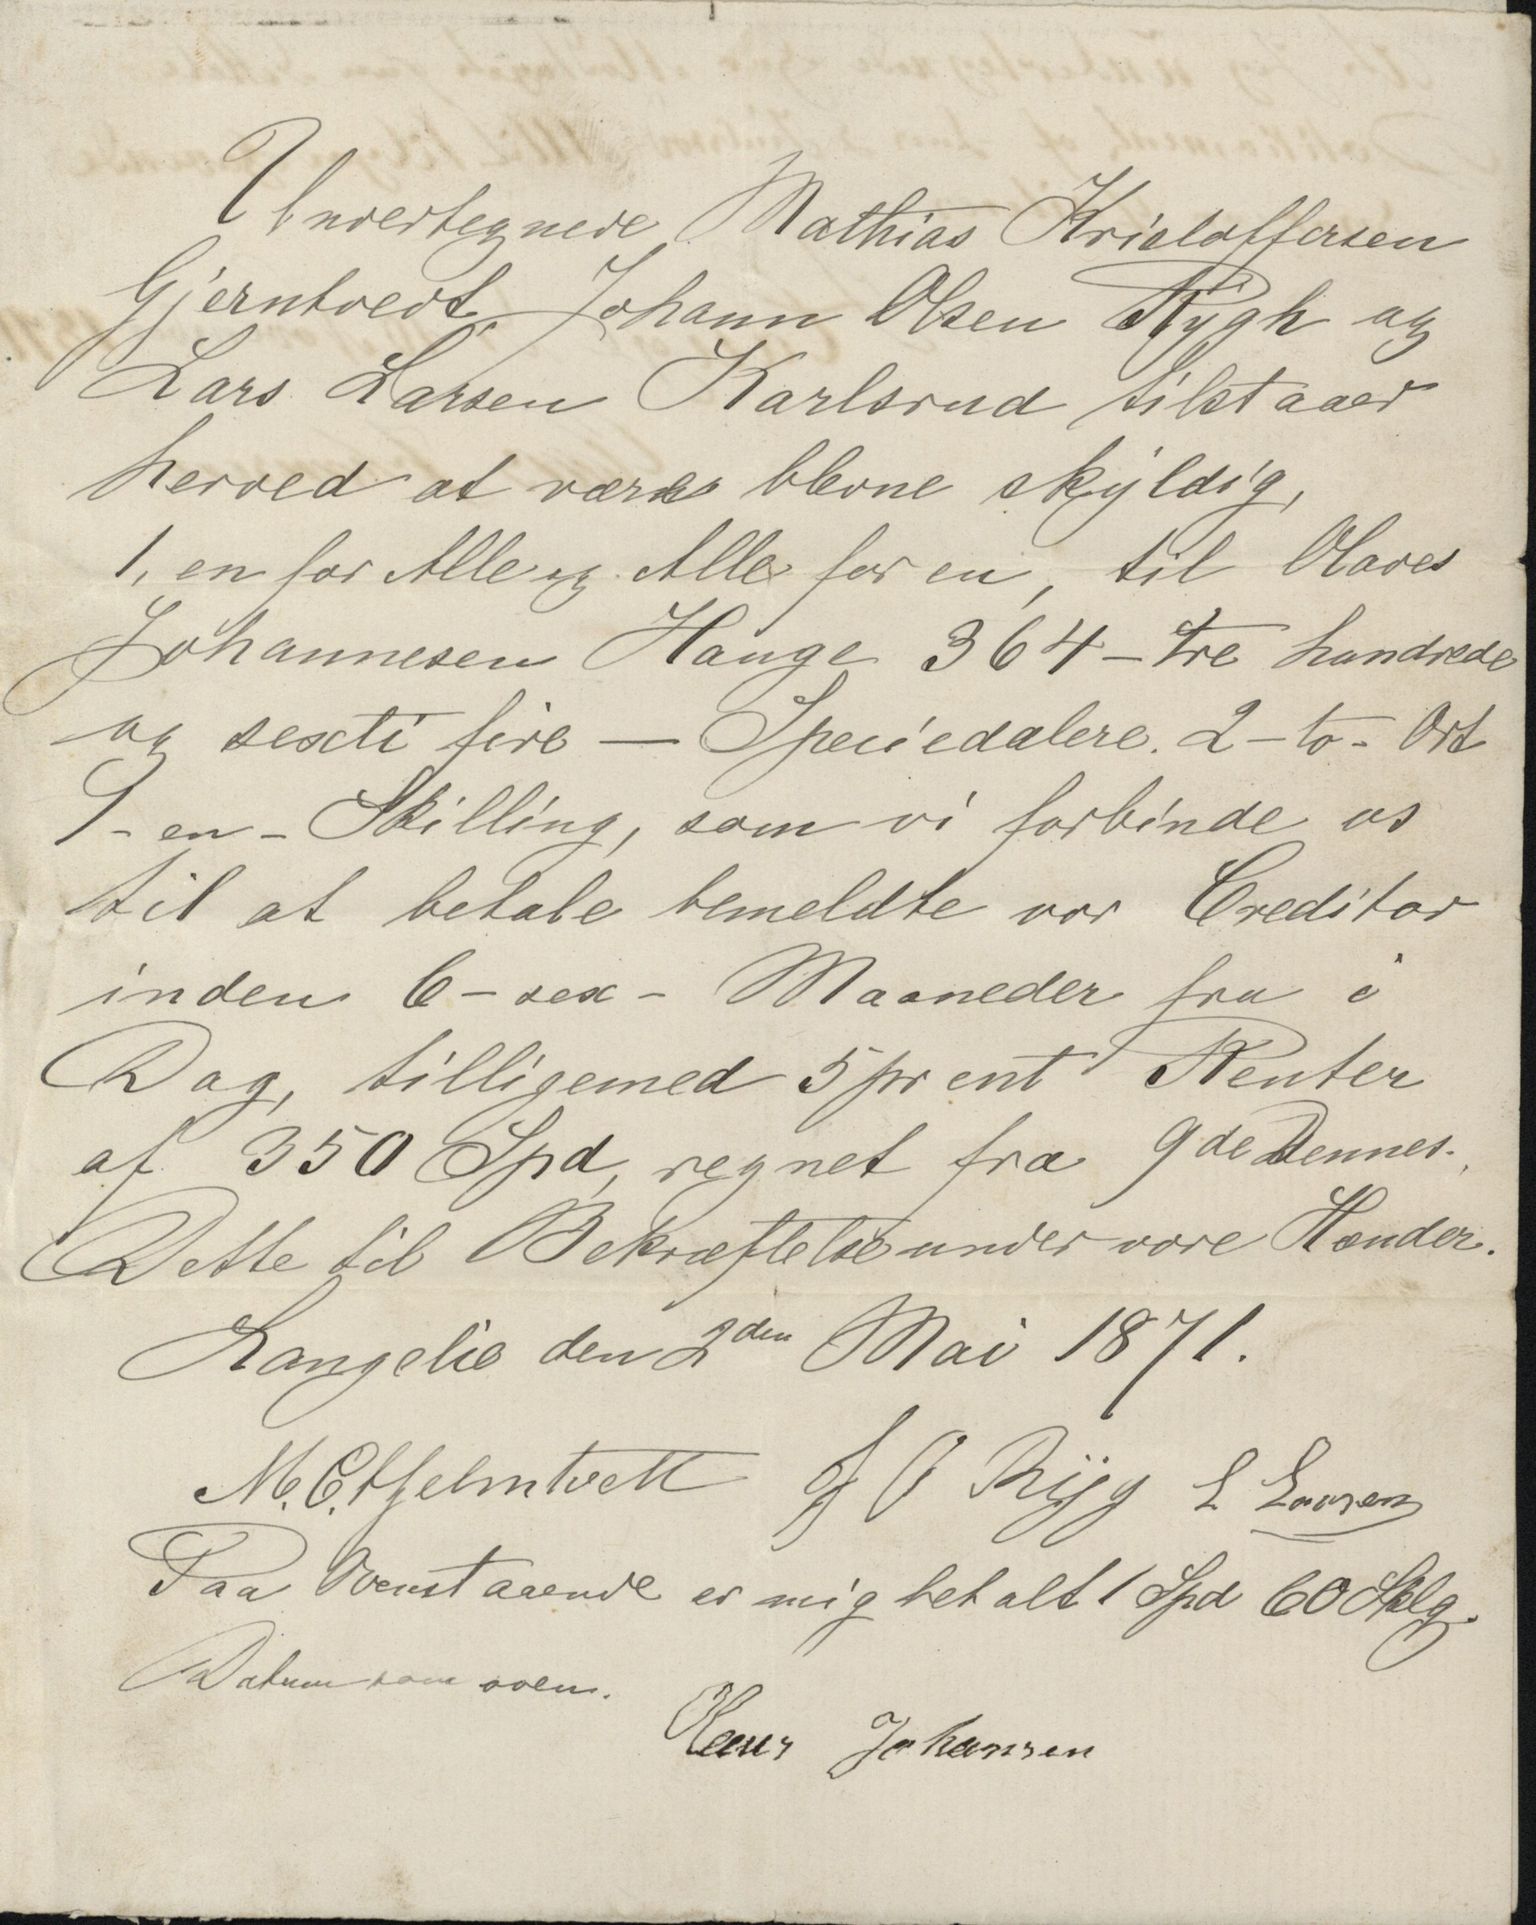 Undertegnede Mathias Kristoffersen
Gjerntvedt, Johann Olsen Rÿgh og
Lars Larsen Karlsrud tilstaaer
herved at være blevne skÿldig,
1, en for Alle og Alle for en, til Olaves
Johannesen Hauge 364 – tre hundrede
og sexti fire — Speciedalere. 2 – to – Ort
1 – en – Skilling, som vi forbinde os
til at betale bemeldte vor Creditor
inden 6 – sex – Maaneder fra i
Dag, tilligemed 5 pr cnt Renter
af 350 Spd, regnet fra 9de Dennes.
Dette til Bekræftelse under vore Hænder.
Langelie den 2den Mai 1871.
M. C. Hjelmtvett J O Rijg L Larsen
Paa Ovenstaaende er mig betalt 1 Spd 60 Sklg.
Datum som oven.
Olaus Johansen